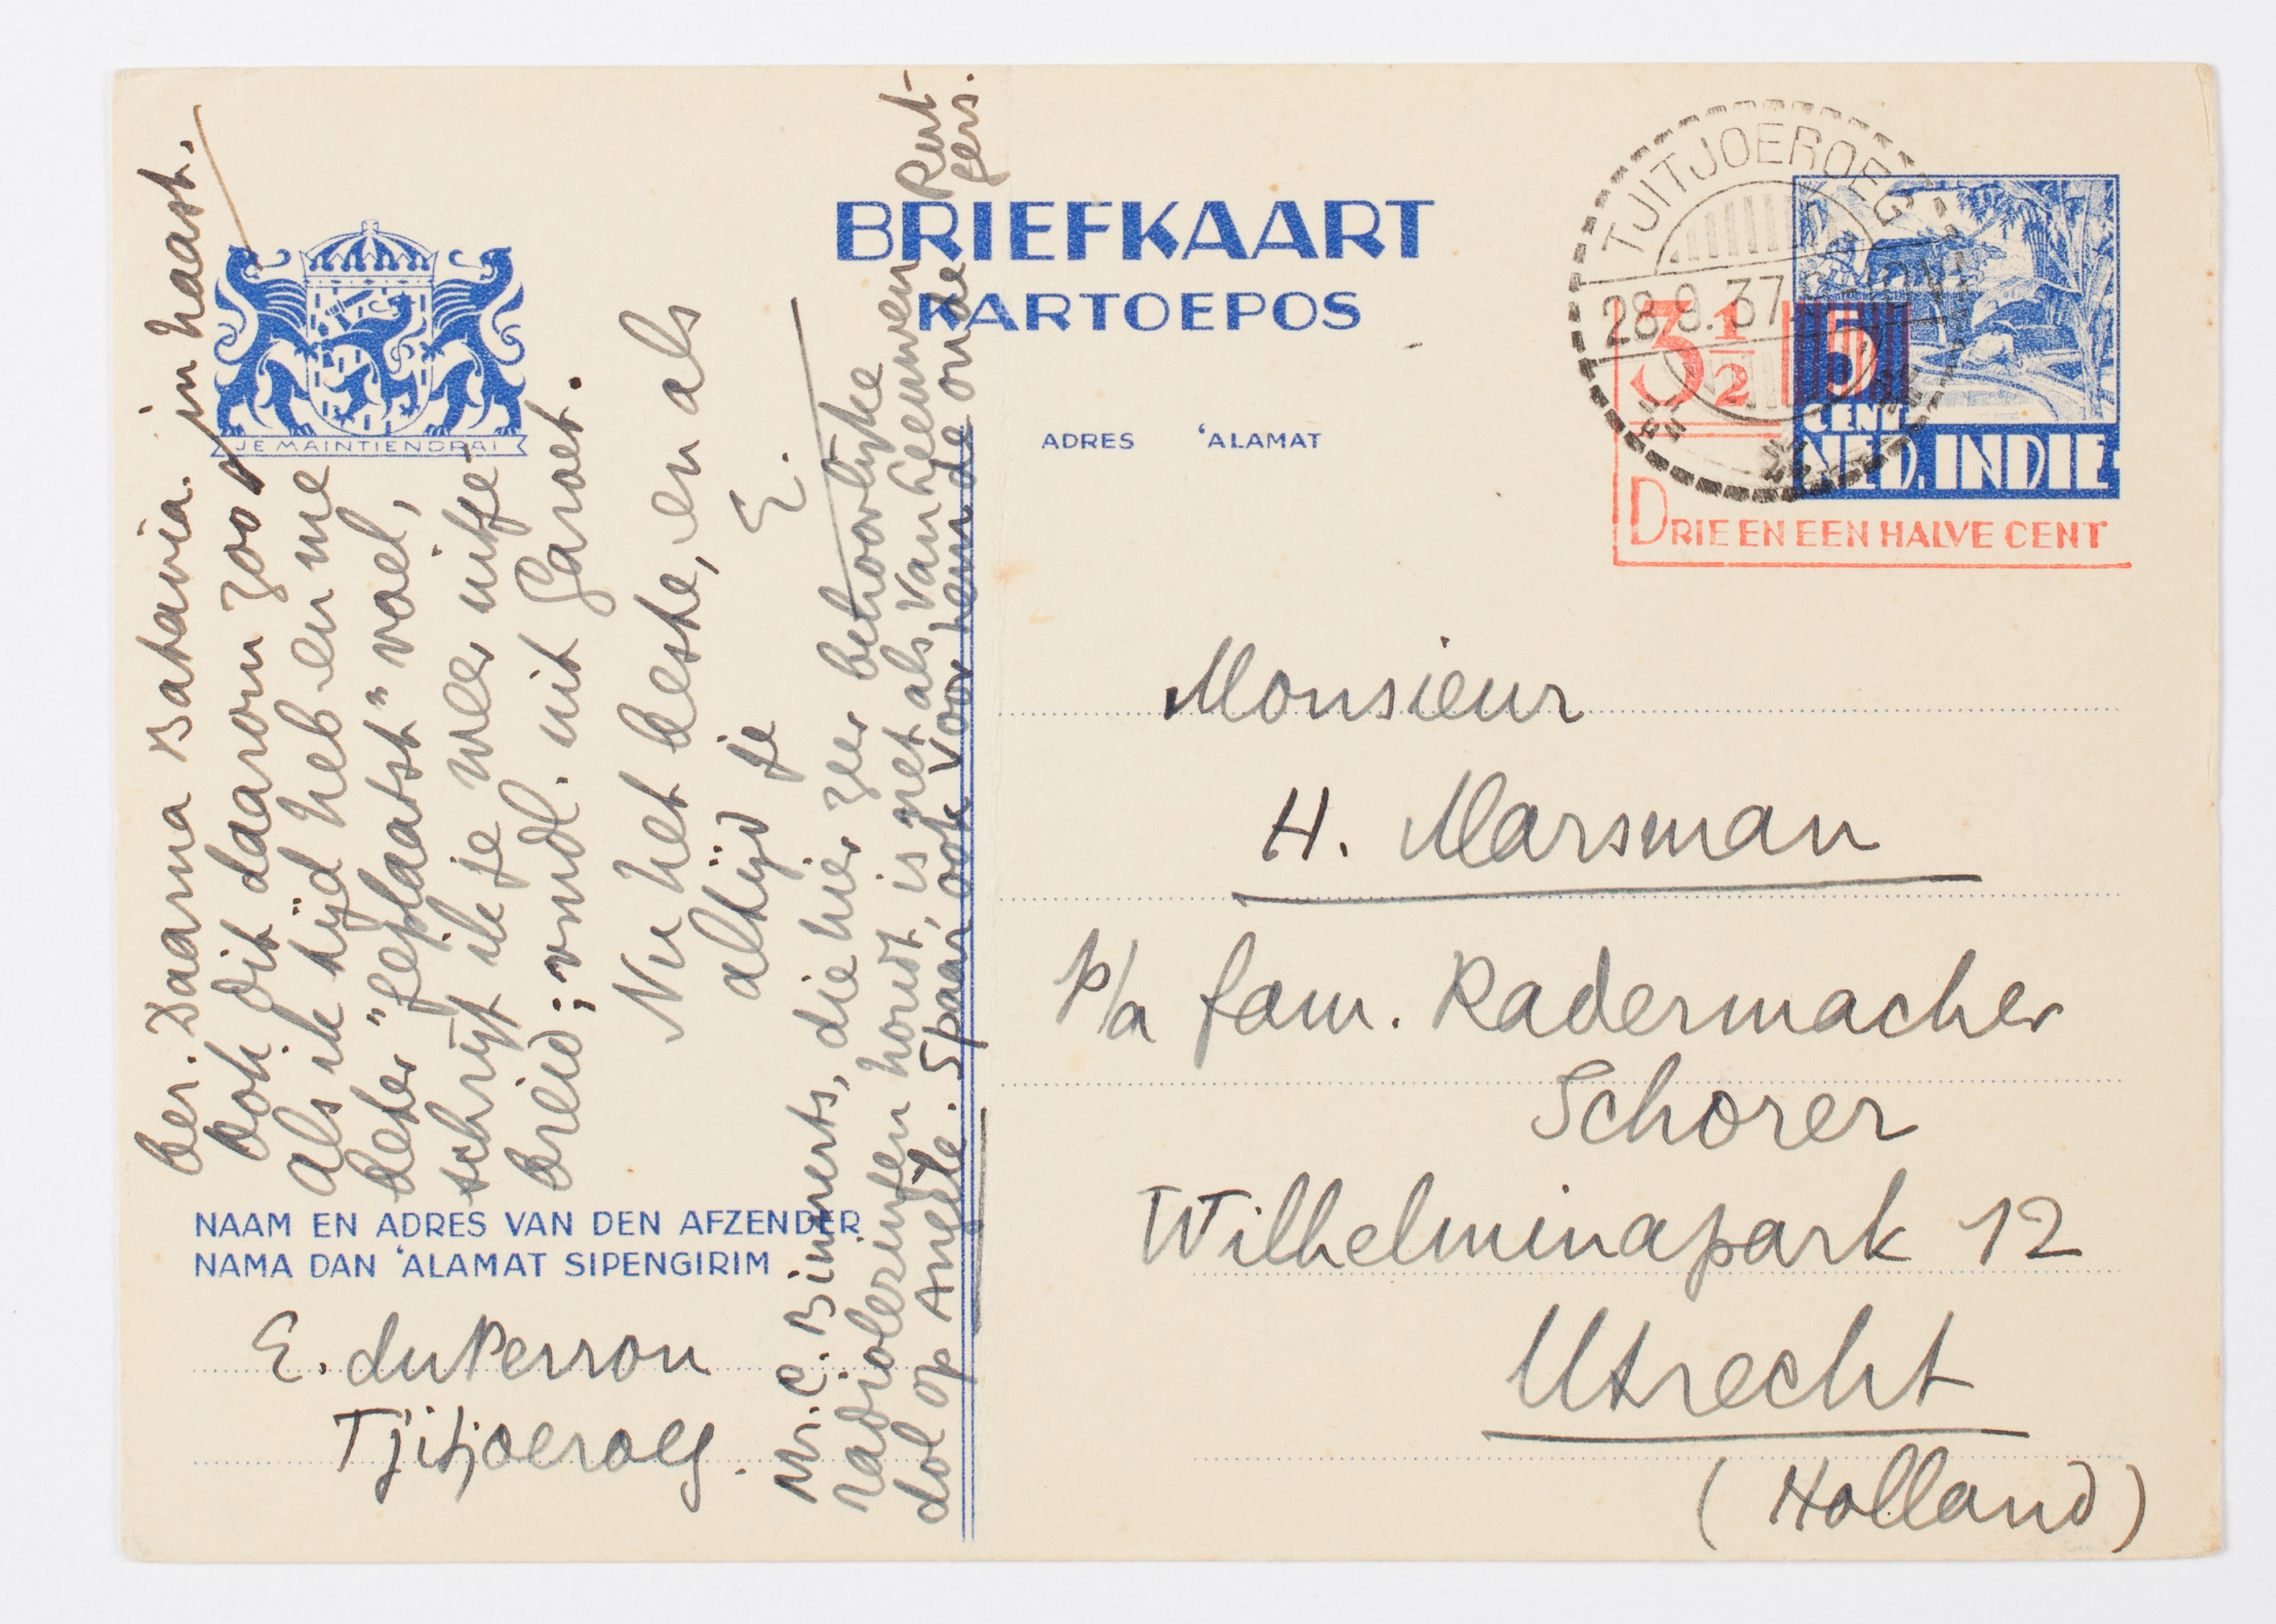 BRIEFKAART
KARTOEPOS
ADRES 'ALAMAT
JE MAINTIENDRAI
TJITJOEROEG
28.9.37
3½
5
CENT
NED. INDIE
DRIE EN EEN HALVE CENT
Monsieur
H. Marsman
p/a fam. Radermacher
Schorer
Wilhelminapark 12
Utrecht
(Holland)
NAAM EN ADRES VAN DEN AFZENDER
NAMA DAN 'ALAMAT SIPENGIRIM
E. du Perron
Tjitjoeroeg.
ber. Daarna Batavia.
Ook dit daarom zoo in haast.
Als ik tijd heb en me
beter "geplaatst" voel,
schrijf ik je weer uitge-
breid; vmdl. uit Garoet.
Nu het beste, en als
altijd je
E.
Mr. C. Binnerts, die hier zeer behoorlijke
radiolezingen houdt, is net als van Leeuwen
dol op Angèle. Spaar ook voor hem de oude Rent-
fers.